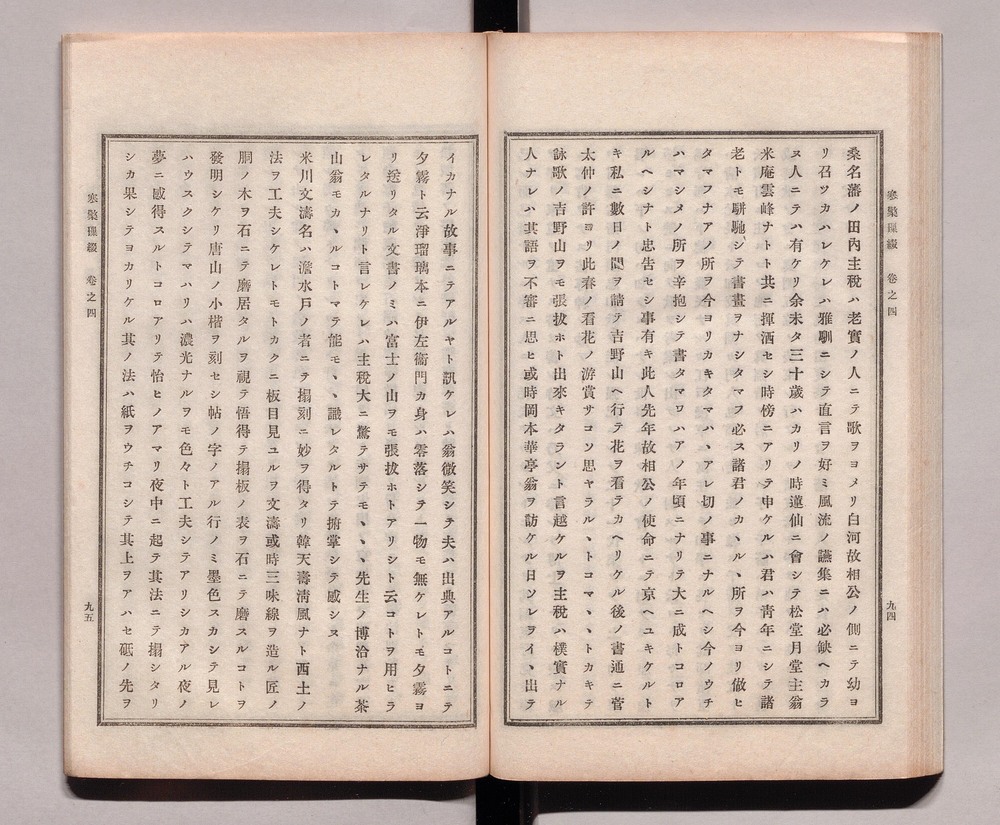 寒檠璅綴 卷之四
九四
桑名藩ノ田內主稅ハ老實ノ人ニテ歌ヲヨメリ白河故相公ノ側ニテ幼ヨ
リ召ツカハレケレハ雅馴ニシテ直言ヲ好ミ風流ノ讌集ニハ必缺ヘカラ
ヌ人ニテハ有ケリ余未タ三十歲ハカリノ時蓮仙ニ會シテ松堂月堂主翁
米庵雲峰ナトト共ニ揮洒セシ時傍ニアリテ申ケルハ君ハ青年ニシテ諸
老トモ駢馳シテ書畫ヲナシタマフ必ス諸君ノカヽル丶所ヲ今ヨリ倣ヒ
タマフナアノ所ヲ今ヨリカキタマハヽアレ切ノ事ニナルヘシ今ノウチ
ハマシメノ所ヲ辛抱シテ書タマワハアノ年頃ニナリテ大ニ成トコロア
ルヘシナト忠告セシ事有キ此人先年故相公ノ使命ニテ京ヘユキケルト
キ私ニ數日ノ間ヲ請テ吉野山ヘ行テ花ヲ看テカヘリケル後ノ書通ニ菅
太仲ノ許ヨリ此春ノ看花ノ游賞サコソ思ヤラルヽトコマヽヽトカキテ
詠歌ノ吉野山ヲモ張拔ホト出來キタラント言越ケルヲ主稅ハ樸實ナル
人ナレハ其語ヲ不審ニ思ヒ或時岡本華亭翁ヲ訪ケル日ソレヲイヽ出テ
イカナル故事ニテアルヤト訊ケレハ翁微笑シテ夫ハ出典アルコトニテ
夕霧ト云淨瑠璃本ニ伊左衞門カ身ハ零落シテ一物モ無ケレトモ夕霧ヨ
リ送リタル文書ノミハ富士ノ山ヲモ張拔ホトアリシト云コトヲ用ヒラ
レタルナリト言レケレハ主稅大ニ驚テサテモヽヽ先生ノ博洽ナル茶
山翁モカヽルコトマテ能モヽ識レタルトテ拊掌シテ感シヌ
米川文濤名ハ澹水戶ノ者ニテ搨刻ニ妙ヲ得タリ韓天壽淸風ナト西土ノ
法ヲ工夫シケレトモトカクニ板目見ユルヲ文濤或時三味線ヲ造ル匠ノ
胴ノ木ヲ石ニテ磨居タルヲ視テ悟得テ搨板ノ表ヲ石ニテ磨スルコトヲ
發明シケリ唐山ノ小楷ヲ刻セシ帖ノ字ノアル行ノミ墨色スカシテ見レ
ハウスクシテマハリハ濃光ナルヲモ色々ト工夫シテアリシカアル夜ノ
夢ニ感得スルトコロアリテ怡ヒノアマリ夜中ニ起テ其法ニテ搨シタリ
シカ果シテヨカリケル其ノ法ハ紙ヲウチコシテ其上ヲアハセ砥ノ先ヲ
寒檠璅綴 卷之四
九五